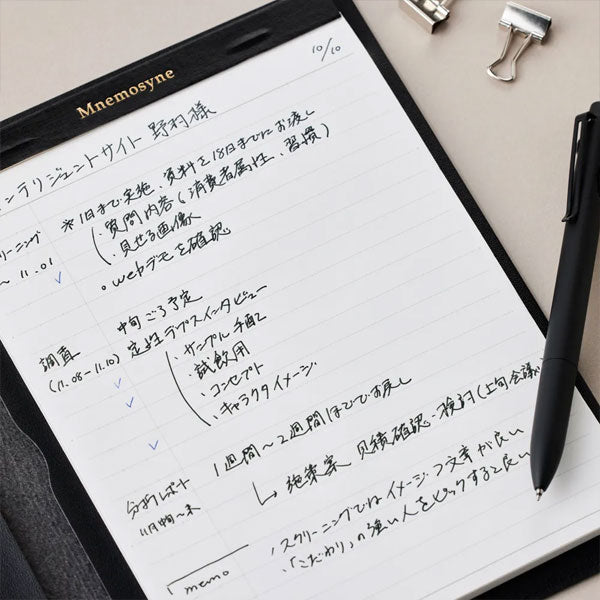 Mnemosyne
10/10
ンテリジェントサイト 野村様
※1日まで実施、資料を18日までにお渡し
・質問内容(消費者属性、習慣)
・見せる画像
リーニング
〜11.01
。webデモを確認
中旬ごろ予定
調査
定性ラプスインタビュー
(11.08-11.10)
・サンプル手配
・試飲用
・コンセプト
・キャラクタイメージ
1週間〜2週間ほどでお戻し
分析レポート
11月中旬〜末
↳施策案 見積確認・検討(上旬会議
memo
・スクリーニングではイメージ・文章が良い
・「こだわり」の強い人をピックすると良い